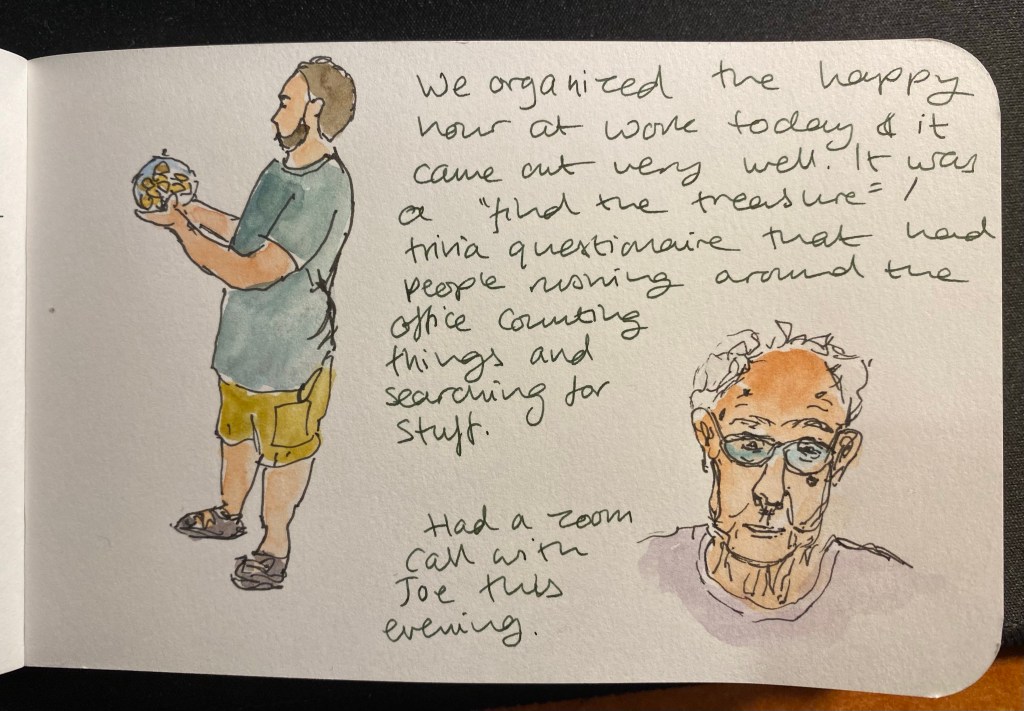 We organized the happy
hour at work today & it
came out very well. It was
a "find the treasure" /
trivia questionaire that had
people running around the
office counting
things and
searching for
stuff.
Had a zoom
call with
Joe this
evening.